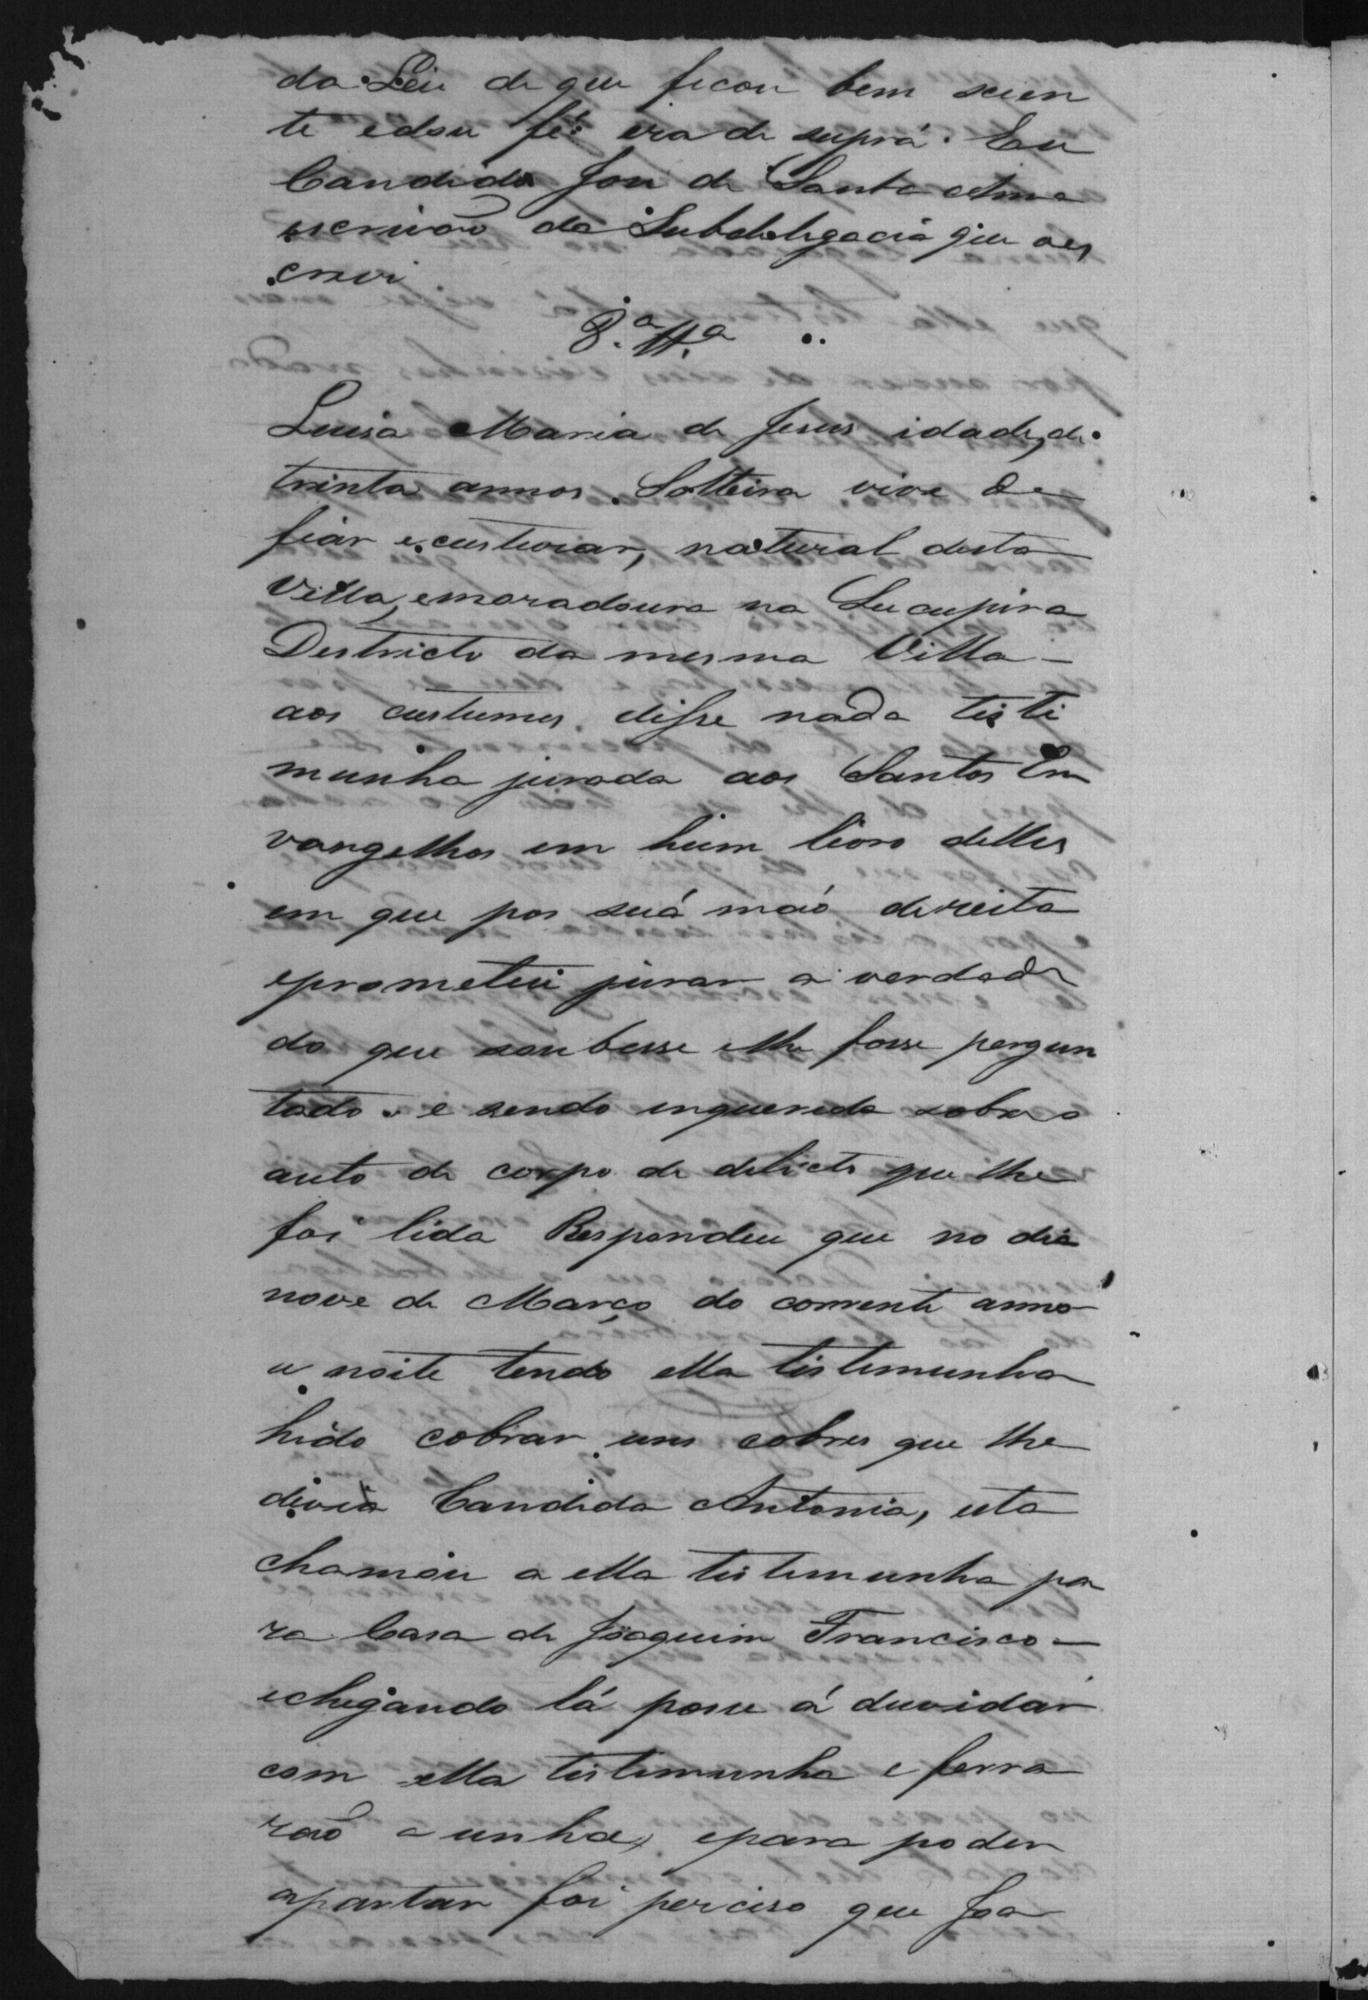 da Lei de que ficou bem scien
te edou fé: era de supra. Eu
Candido José de Santa Anna
escrivaõ da Subdelegacia que oes
crivi
8.ª Tt.ª
Luisa Maria de Jesus idade, de
trinta annos. Solteira vive de
fiar e custurar, natural desta
Villa, emoradoura na Sucupira
Destricto da mesma Villa -
aos custumes disse nada testi
munha jurada aos Santos En
vangelhos em huim livro delles
em que pos suá maõ dereita
eprometeu jurar a verdade
do que soubesse elhe fosse pergun
tado. e sendo enquerida sobre o
auto de corpo de delicto que lhe
foi lido Respondeu que no dia
nove de Março do corrente anno
a noite tendo ella testemunha
hido cobrar uns cobres que lhe
divia Candida Antonia, esta
chamou a ella testemunha pa
ra Casa de Joaquim Francisco -
echegando lá posse á duvidar
com ella testimunha e ferra
raõ a unha, epara poder
apartar foi perciso que Joa